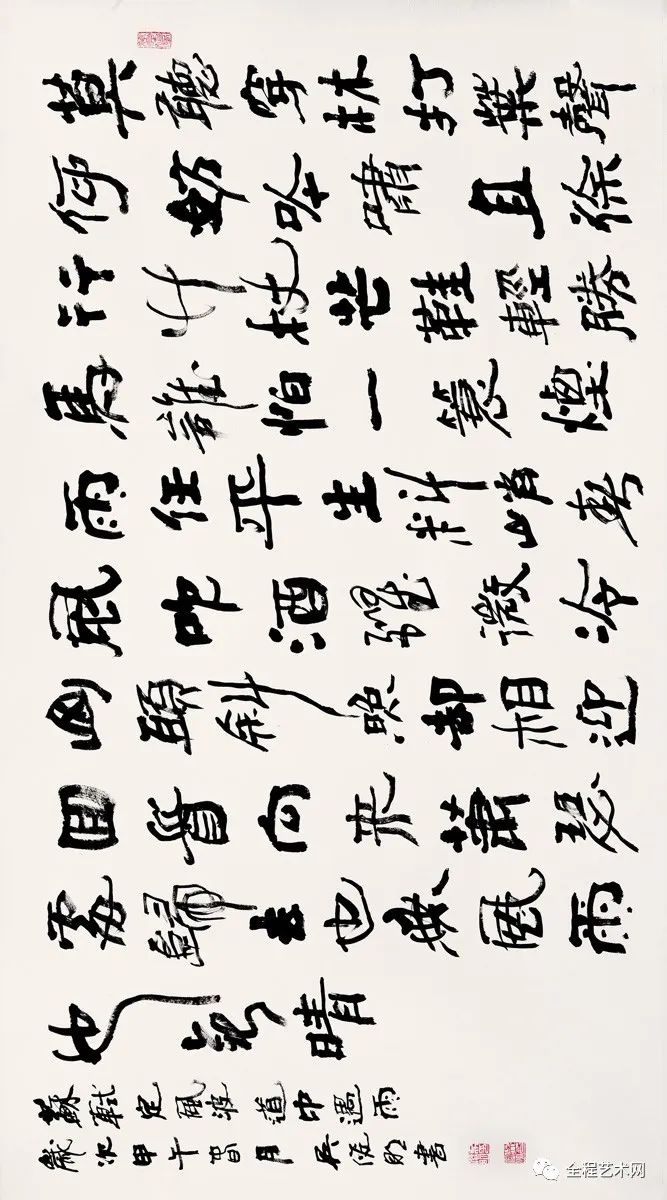 莫聽穿林打葉聲
何妨吟嘯且徐
行竹杖芒鞵輕勝
馬誰怕一蓑煙
雨任平生料峭春
風吹酒醒微冷
山頭斜照却相迎
回首向来蕭瑟
處歸去也無風雨
也無晴
蘇軾定風波道中遇雨
歲次甲午春月吳書
全程艺术网